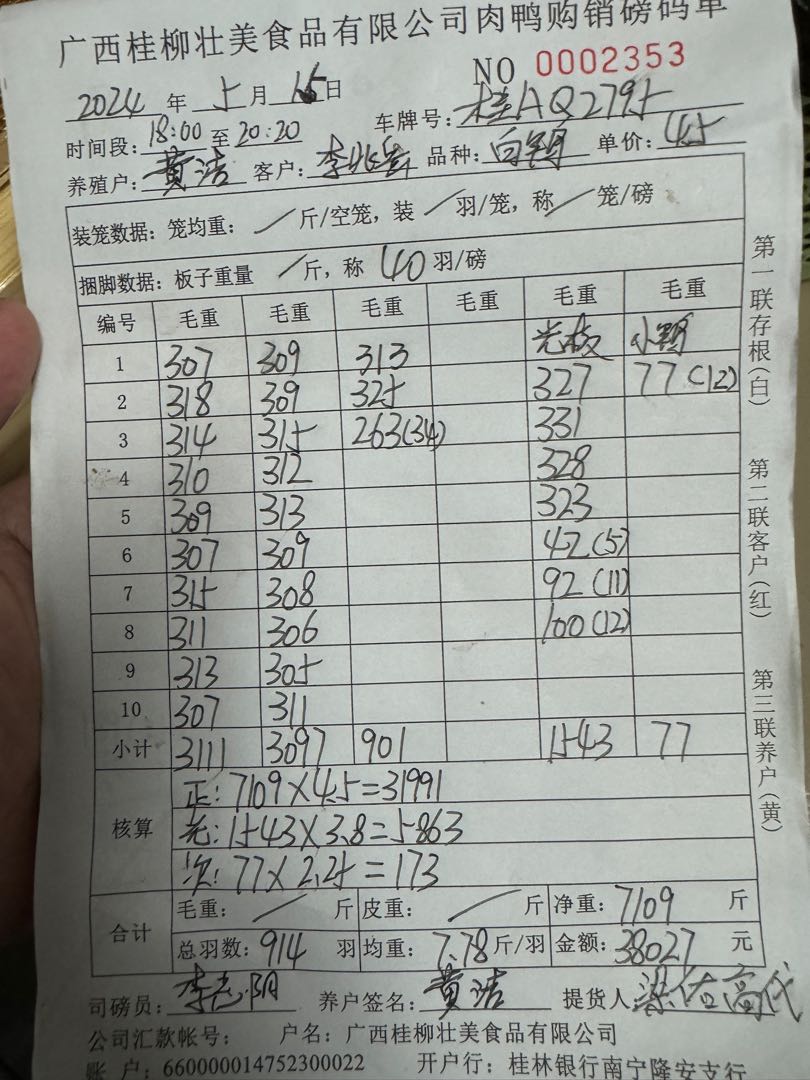 广西桂柳壮美食品有限公司肉鸭购销磅码单
NO 0002353
2024 年 5 月 15 日
时间段: 18:00 至 20:20 车牌号: 桂AQ2795
养殖户: 黄洁 客户: 品种: 白 单价: 4.5
装笼数据: 笼均重: / 斤/空笼, 装 / 羽/笼, 称 / 笼/磅
捆脚数据: 板子重量 / 斤, 称 40 羽/磅
编号 毛重 毛重 毛重 毛重 毛重 毛重
光板 小
1 307 309 313
2 318 309 325 327 77(12)
3 314 315 263(34) 331
4 310 312 328
5 309 313 323
6 307 309 42(5)
7 315 308 92(11)
8 311 306 100(12)
9 313 305
10 307 311
小计 3111 3097 901 1543 77
核算 正: 7109×4.5=31991
光: 1543×3.8=5863
次: 77×2.25=173
合计 毛重: / 斤 皮重: / 斤 净重: 7109 斤
总羽数: 914 羽 均重: 7.78 斤/羽 金额: 38027 元
司磅员: 养户签名: 黄洁 提货人
公司汇款帐号: 户名: 广西桂柳壮美食品有限公司
账 户: 660000014752300022 开户行: 桂林银行南宁隆安支行
第一联存根(白)
第二联客户(红)
第三联养户(黄)